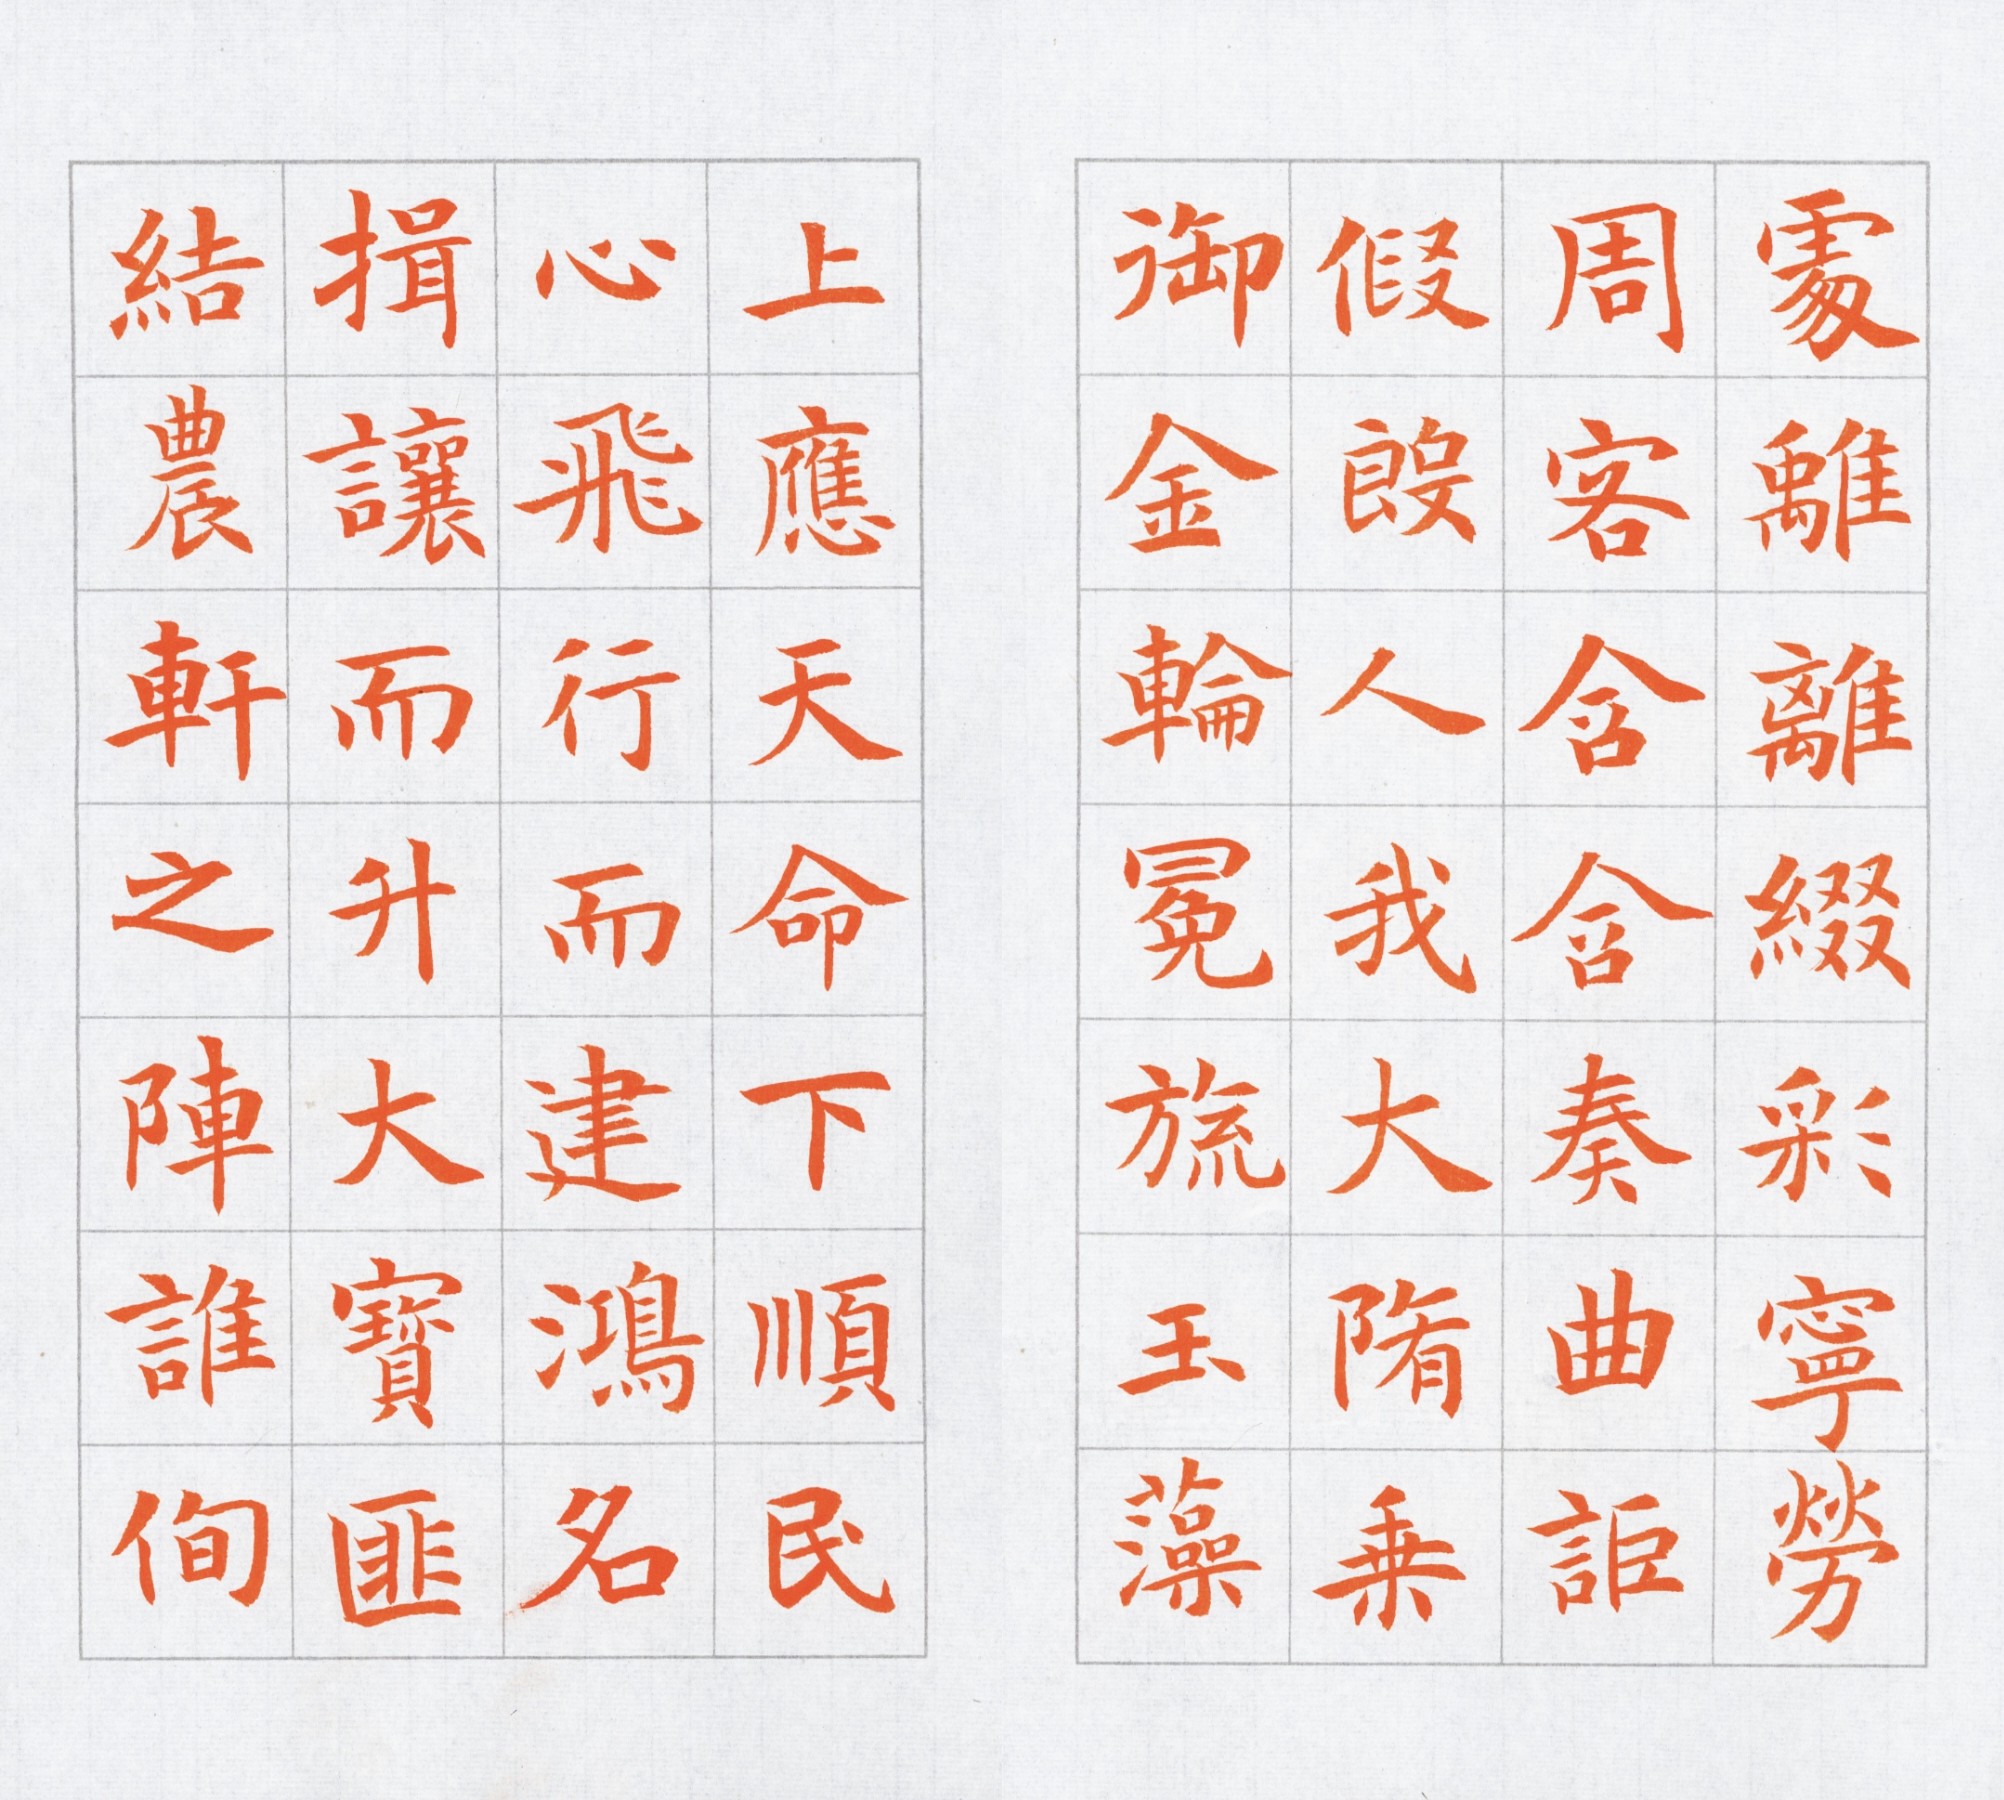 離離綴彩寧勞
周客含含奏曲詎
假殷人我大隋乗
御金輪冕旒玉藻
上應天命下順民
心飛行而建鴻名
揖讓而升大寶匪
結農軒之陣誰侚